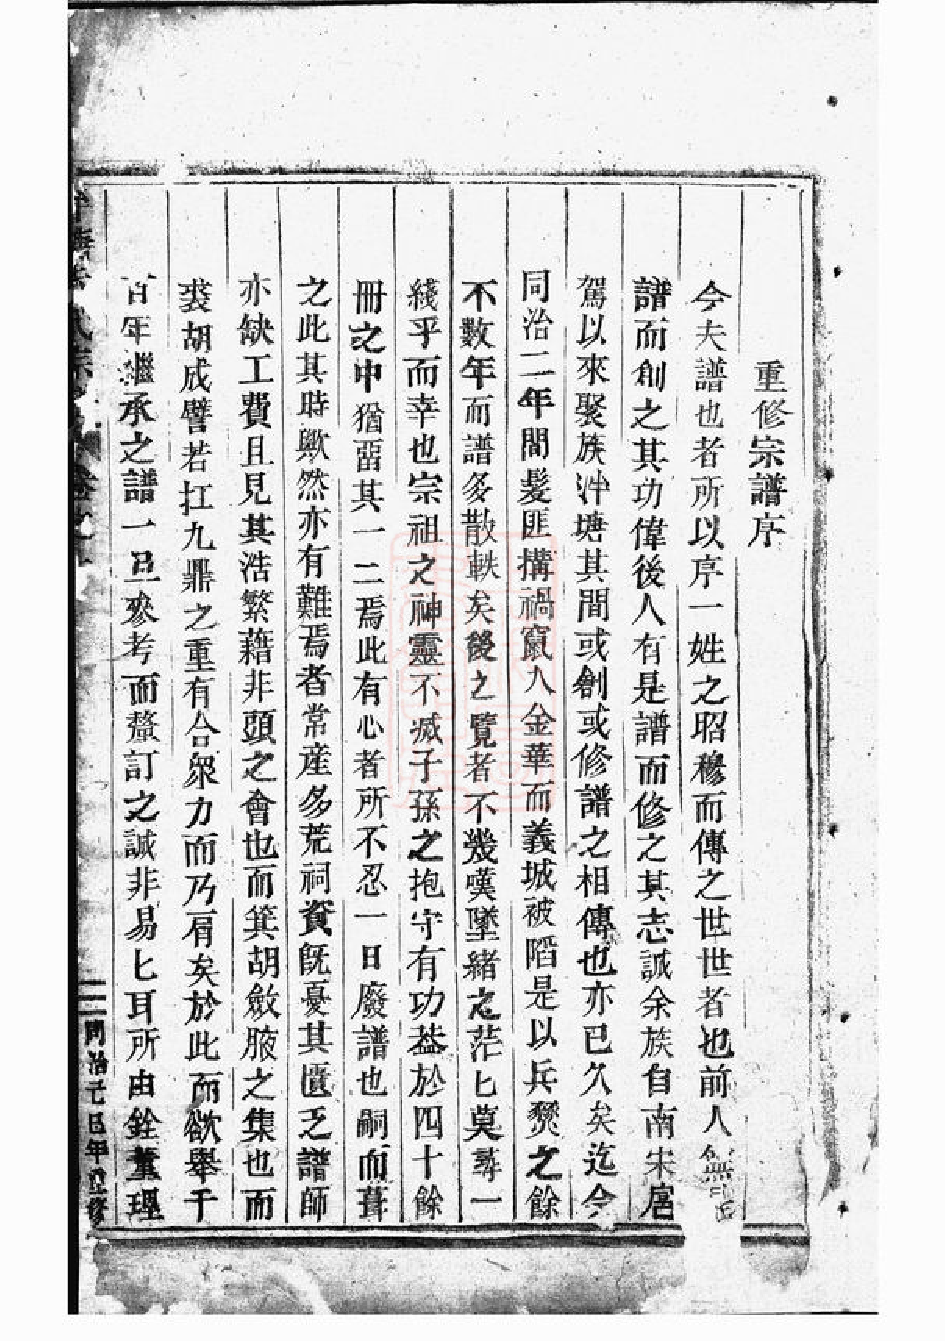 重修宗譜序
今夫譜也者所以序一姓之昭穆而傳之世世者也前人無
譜而創之其功偉後人有是譜而修之其志誠余族自南宋扈
駕以來聚族沖塘其間或創或修譜之相傳也亦已久矣迄今
同治二年間髮匪搆禍竄入金華而義城被陷是以兵燹之餘
不數年而譜多散軼矣後之覽者不幾嘆墜緒之茫匕莫尋一
綫乎而幸也宗祖之神靈不滅子孫之抱守有功益於四十餘
冊之中猶畱其一二焉此有心者所不忍一日廢譜也嗣而葺
之此其時歟然亦有難焉者常産多荒祠資旣憂其匱乏譜師
亦缺工費且見其浩繁藉非頭之會也而箕胡斂腋之集也而
裘胡成譬若扛九鼎之重有合衆力而乃肩矣於此而欲舉千
百年繼承之譜一旦叅考而釐訂之誠非易匕耳所由銓董理
氏宗 卷 二 同治己巳年重修